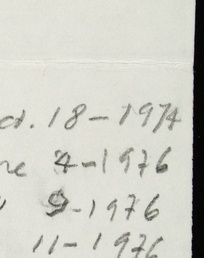 ct. 18-1974
ne 4-1976
9-1976
11-1976